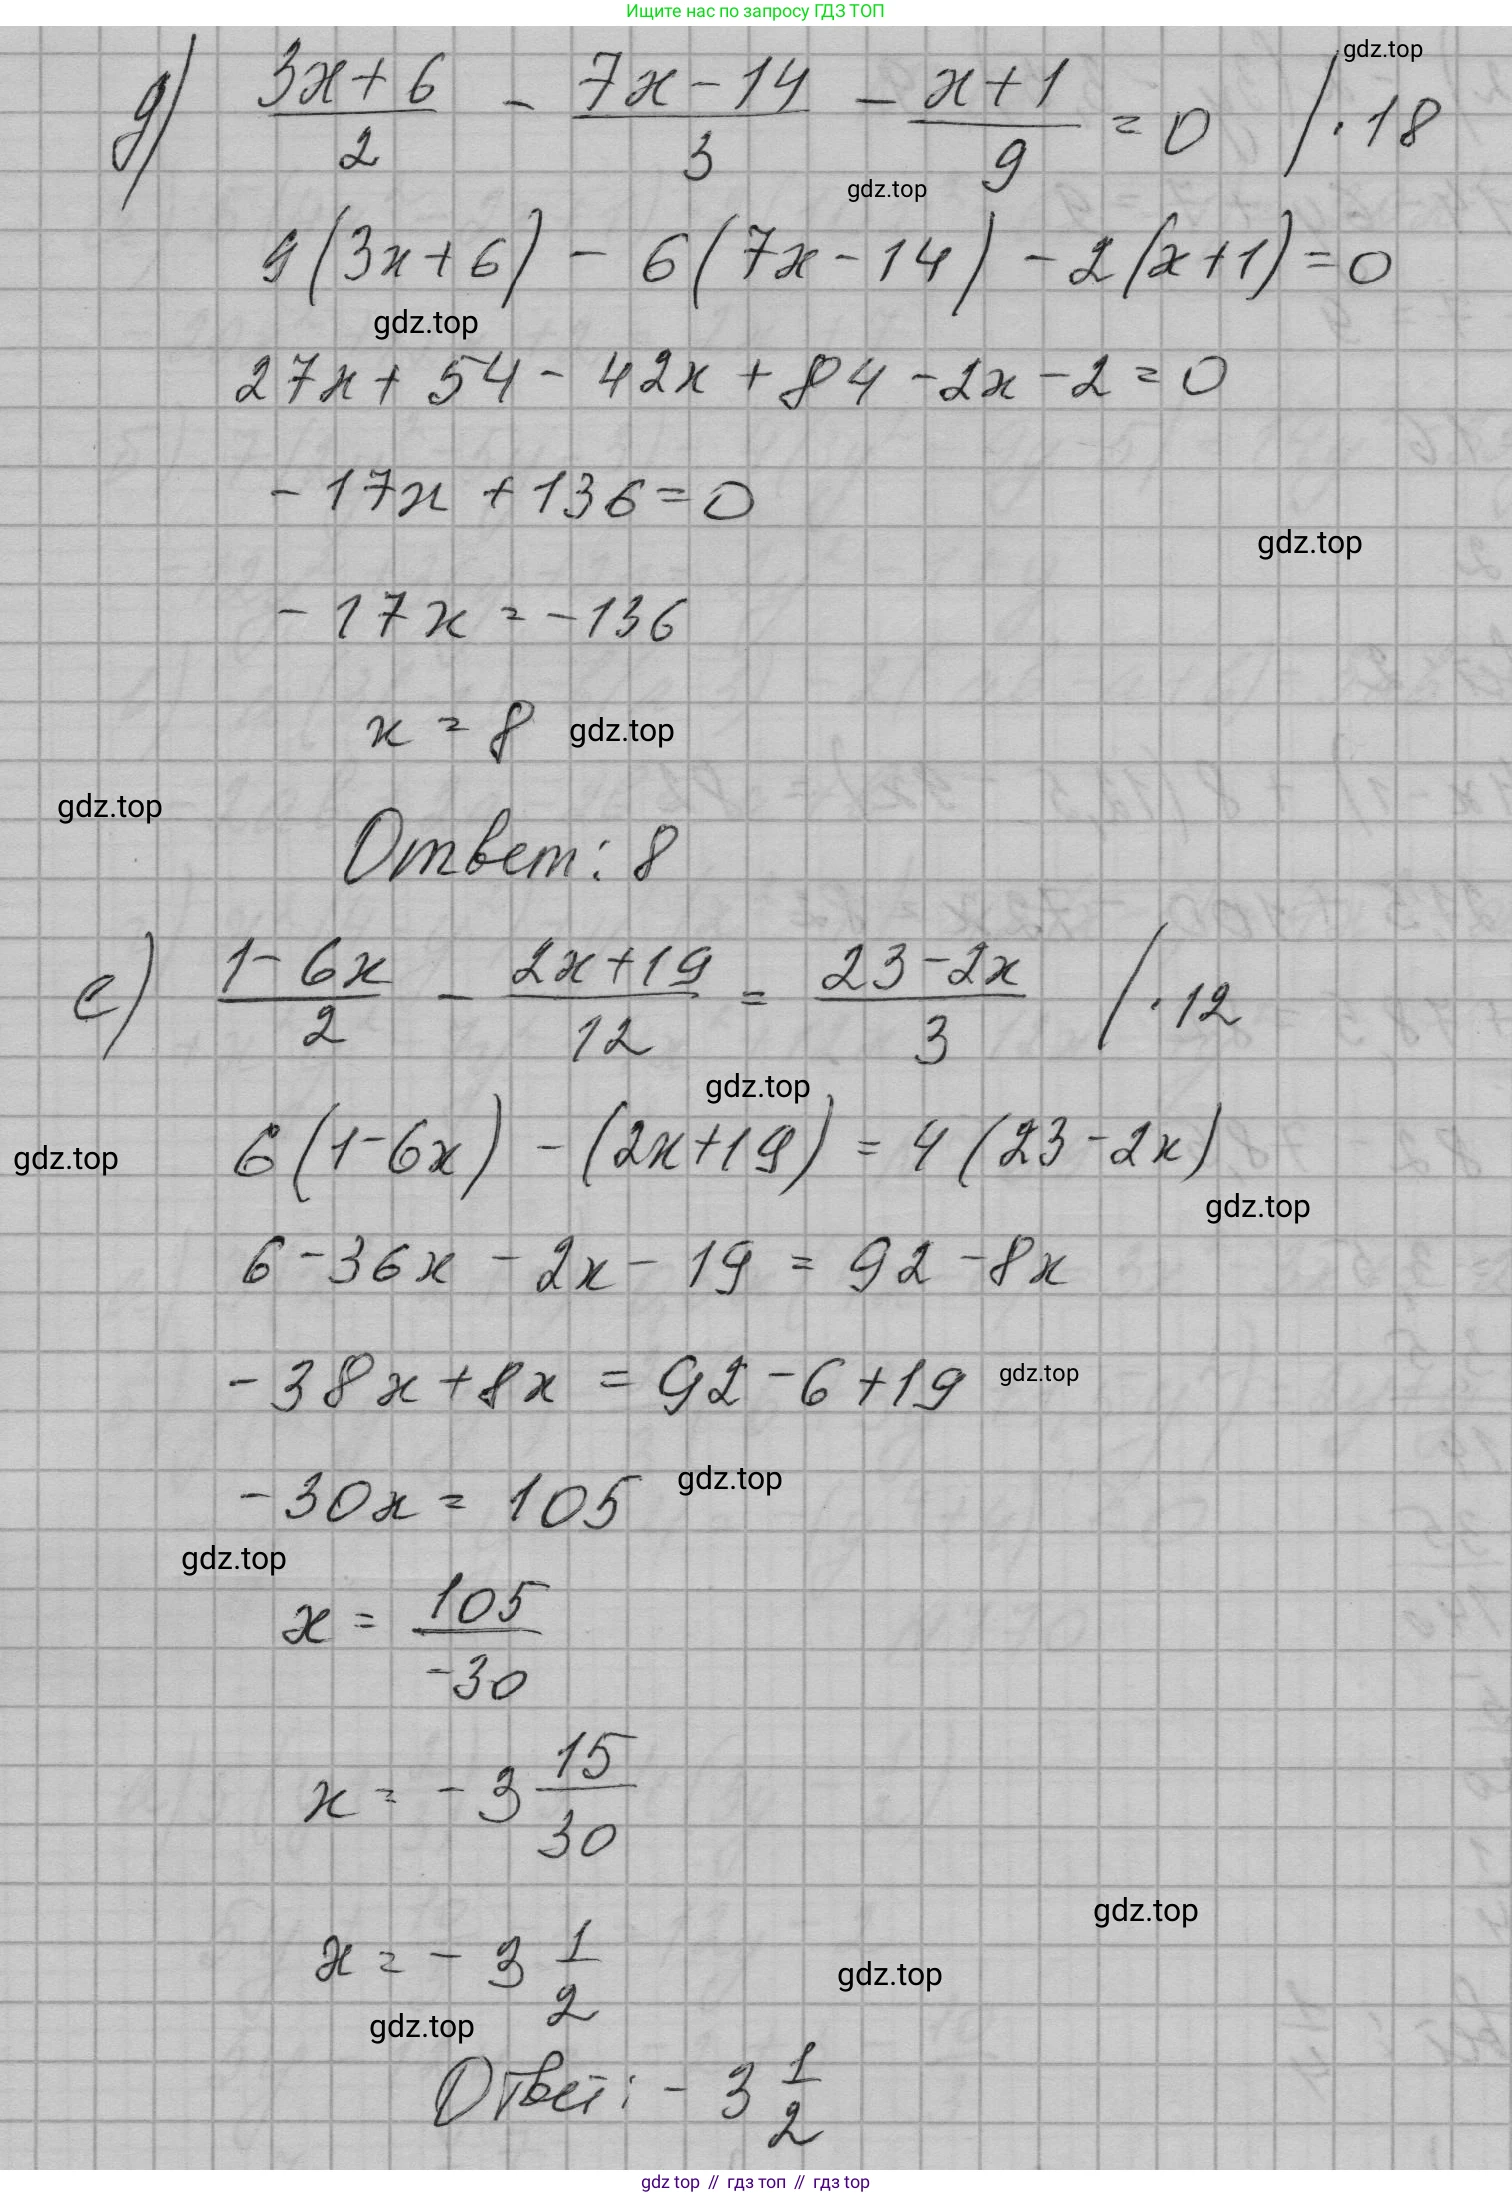 Ищите нас по запросу ГДЗ ТОП
gdz.top
д) (3x+6)/2 - (7x-14)/3 - (x+1)/9 = 0 /·18
gdz.top
9(3x+6) - 6(7x-14) - 2(x+1) = 0
gdz.top
27x + 54 - 42x + 84 - 2x - 2 = 0
-17x + 136 = 0
gdz.top
-17x = -136
x = 8 gdz.top
gdz.top
Ответ: 8
е) (1-6x)/2 - (2x+19)/12 = (23-2x)/3 /·12
gdz.top
6(1-6x) - (2x+19) = 4(23-2x)
gdz.top
gdz.top
6-36x - 2x - 19 = 92 - 8x
-38x + 8x = 92 - 6 + 19 gdz.top
-30x = 105 gdz.top
gdz.top
x = 105/-30
x = -3 15/30
gdz.top
x = -3 1/2
gdz.top
gdz.top
Ответ: -3 1/2
gdz top // гдз топ // gdz top